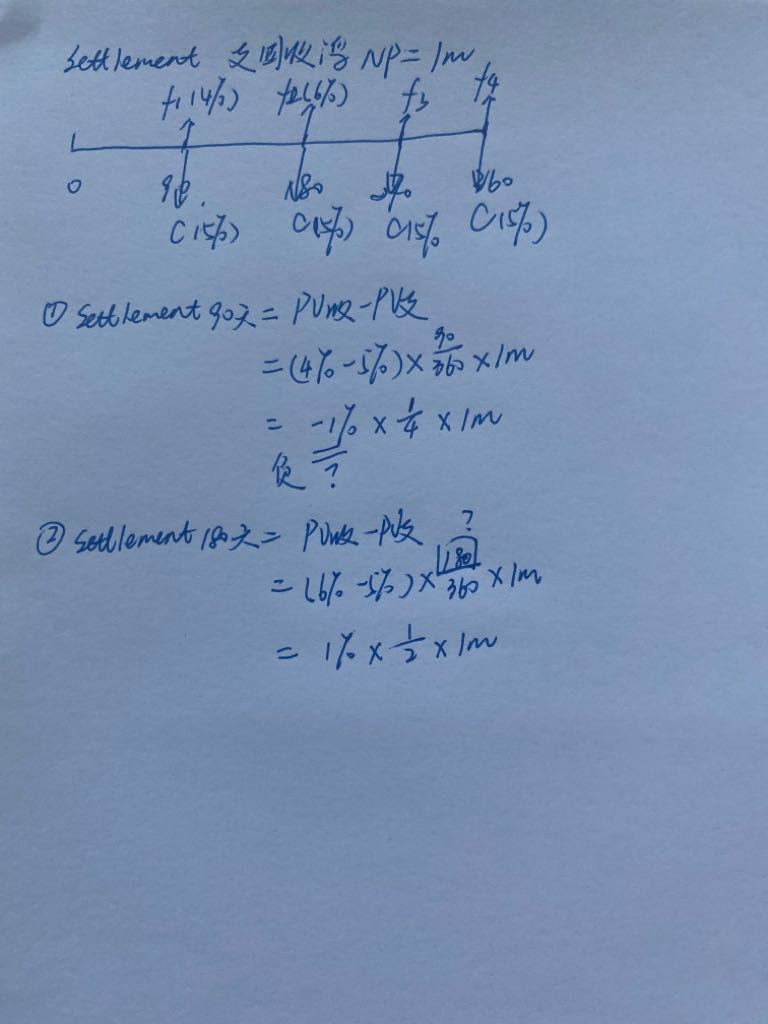 settlement 支固收浮 NP=1m
f1(4%) f2(6%) f3 f4
0 90 180 270 360
C(5%) C(5%) C(5% C(5%)
① settlement 90天 = PV收 - PV支
= (4% - 5%) × 90/360 × 1m
= -1% × 1/4 × 1m
负 ?
② settlement 180天 = PV收 - PV支 ?
= (6% - 5%) × 180/360 × 1m
= 1% × 1/2 × 1m